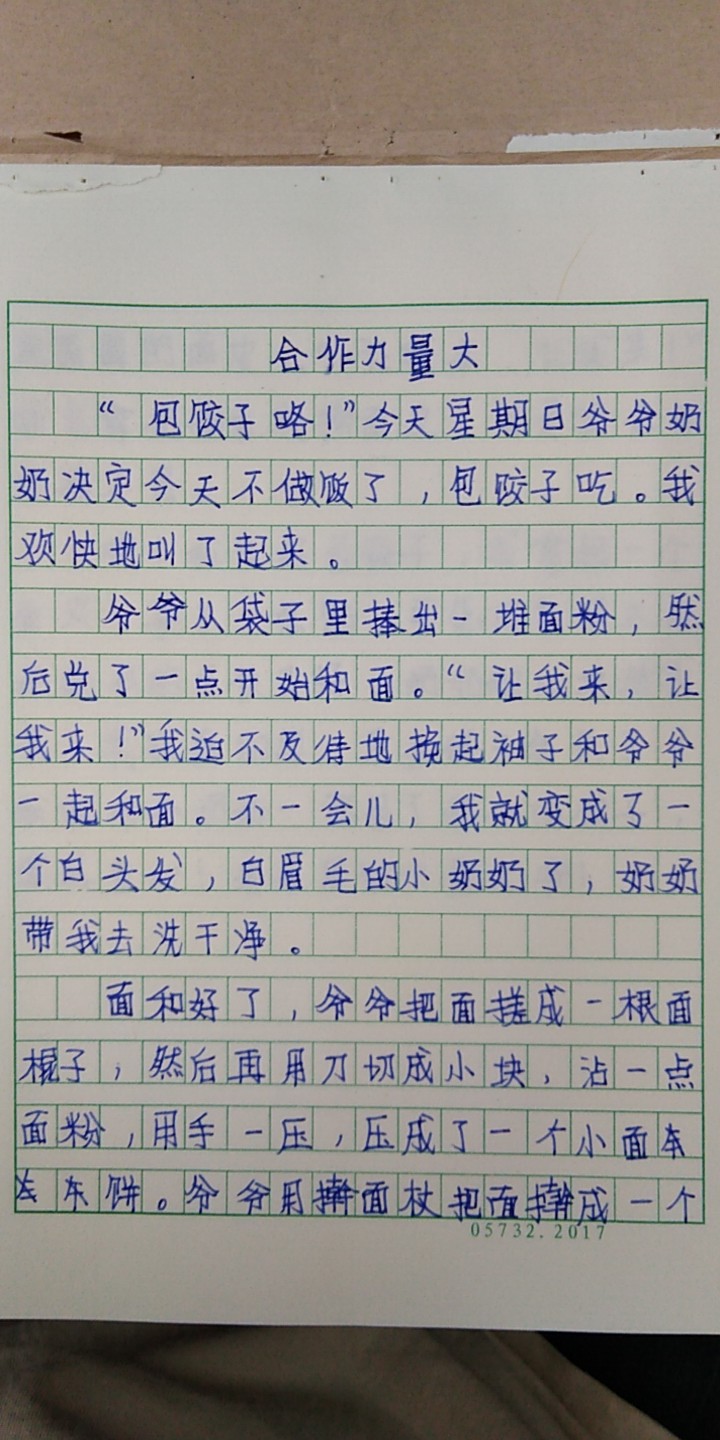 合作力量大
“包饺子咯！”今天星期日爷爷奶
奶决定今天不做饭了，包饺子吃。我
欢快地叫了起来。
爷爷从袋子里捧出一堆面粉，然
后兑了一点开始和面。“让我来，让
我来！”我迫不及待地挽起袖子和爷爷
一起和面。不一会儿，我就变成了一
个白头发，白眉毛的小奶奶了，奶奶
带我去洗干净。
面和好了，爷爷把面搓成一根面
棍子，然后再用刀切成小块，沾一点
面粉，用手一压，压成了一个小面
饼。爷爷用擀面杖把面擀成一个
05732.2017